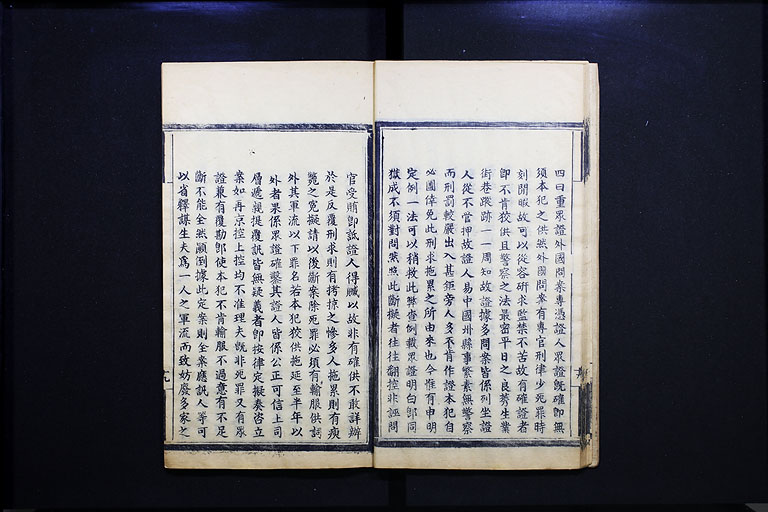 四曰重眾證外國問案專憑證人眾證既確即無
須本犯之供然外國問案有專官刑律少死罪時
刻閒暇故可以從容研求監禁不苦故有確證者
即不肯狡供且警察之法最密平日之良莠生業
街巷蹤跡一一周知故證據多問案皆係列坐證
人從不管押故證人易中國州縣事繁素無警察
而刑罰較嚴出入甚鉅旁人多不肯作證本犯自
必圖倖免此刑求拖累之所由來也今惟有申明
定例一法可以稍救此弊查例載眾證明白即同
獄成不須對問然照此斷擬者往往翻控非誣問
官受賄即詆證人得贓以故非有確供不敢詳辦
於是反覆刑求則有拷掠之慘多人拖累則有瘐
斃之冤擬請以後斷案除死罪必須有輸服供詞
外其軍流以下罪名若本犯狡供拖延至半年以
外者果係眾證確鑿其證人皆係公正可信上司
層遞親提覆訊皆無疑義者即按律定擬奏咨立
案如再京控上控均不准理夫既非死罪又有眾
證兼有覆勘即使本犯不肯輸服不過意有不足
斷不能全然顛倒據此定案則全案應訊人等可
以省釋謀生夫為一人之軍流而致妨廢多家之